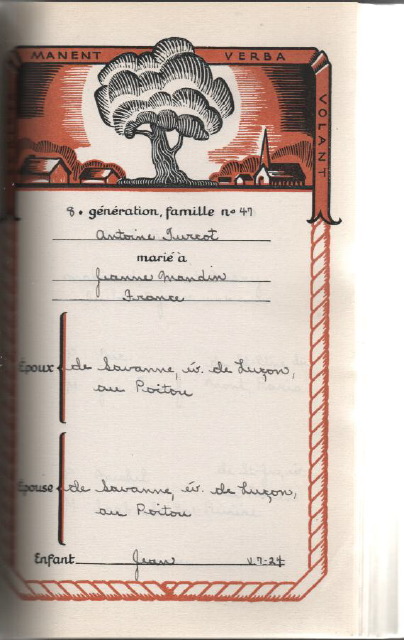 MANENT VERBA
VOLANT
8. génération, famille nº 47
Antoine Turcot
marié à
Jeanne Mandin
France
Époux de Savanne, év. de Luçon,
au Poitou
Épouse de Savanne, év. de Luçon,
au Poitou
Enfant Jean V. 7-24